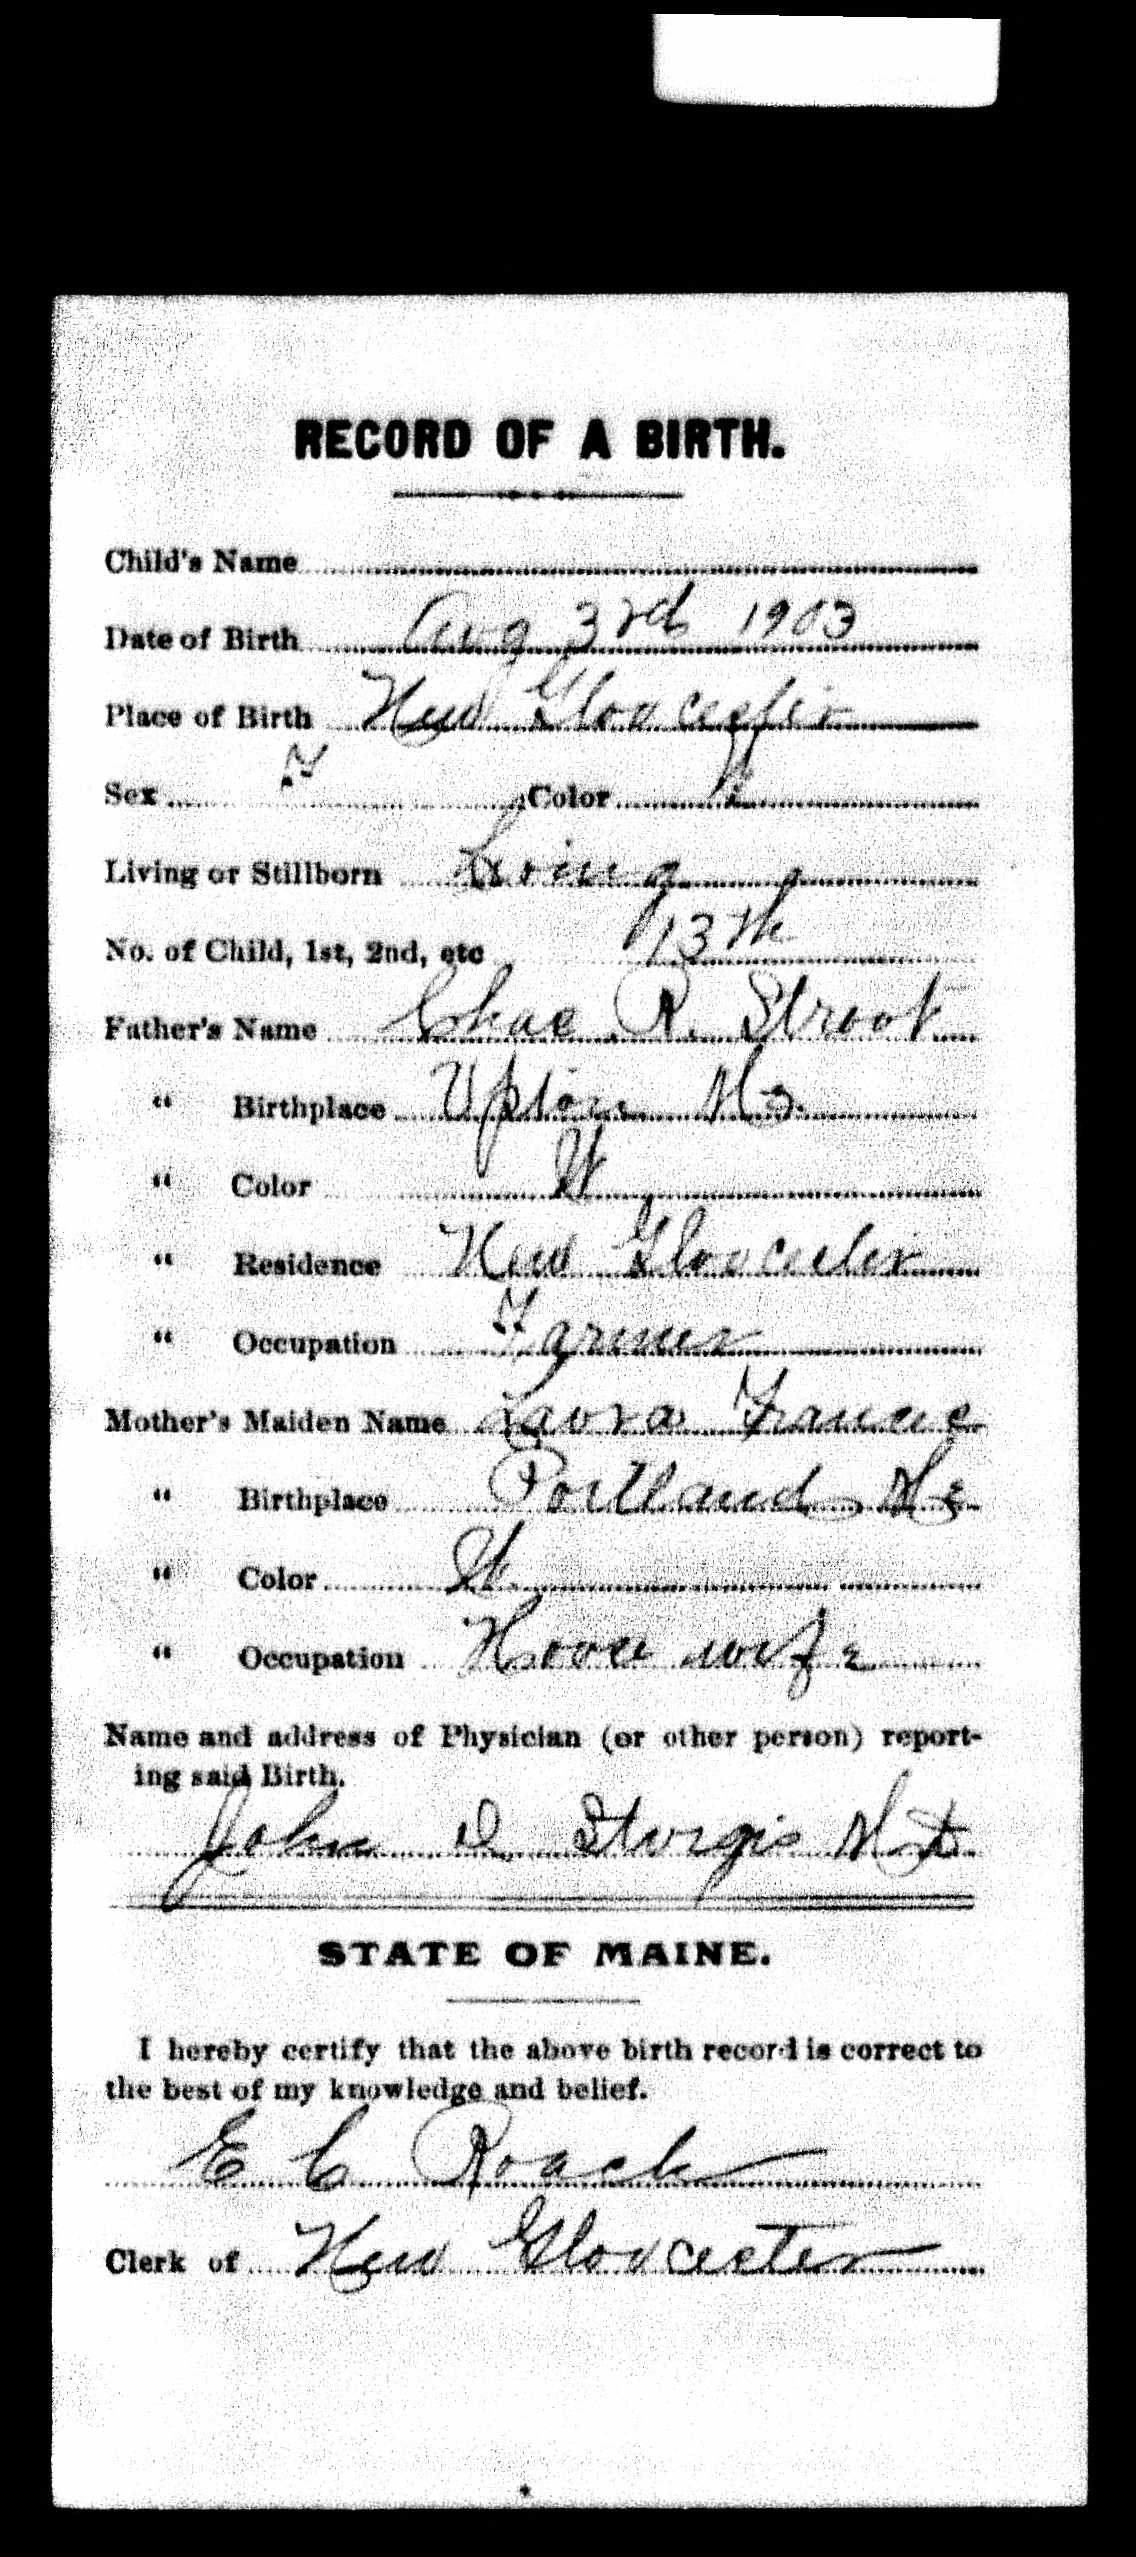 RECORD OF A BIRTH.
Child's Name
Date of Birth Aug 3rd 1903
Place of Birth New Gloucester
Sex F Color W
Living or Stillborn Living
No. of Child, 1st, 2nd, etc 13th
Father's Name Chas R. Strout
" Birthplace Upton Me.
" Color W
" Residence New Gloucester
" Occupation Farmer
Mother's Maiden Name Laura
" Birthplace Portland Me
" Color W
" Occupation House wife
Name and address of Physician (or other person) report-
ing said Birth.
John D. Sturgis M D
STATE OF MAINE.
I hereby certify that the above birth record is correct to
the best of my knowledge and belief.
E C Roach
Clerk of New Gloucester